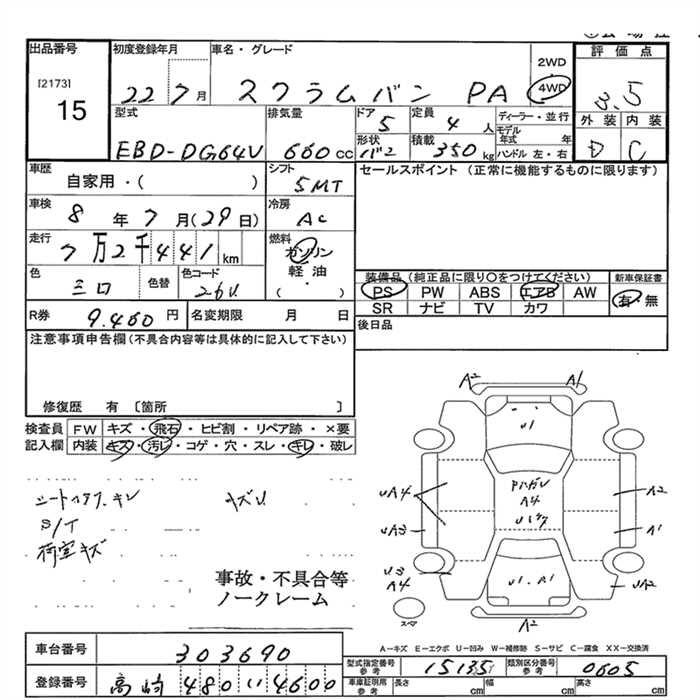 出品番号
[2173]
15
初度登録年月
22 7月
車名・グレード
スクラムバン PA
2WD
4WD
評価点
3.5
型式
EBD-DG64V
排気量
660cc
ドア
5
定員
4人
形状
バン
積載
350kg
ディーラー・並行
モデル年式 年
ハンドル 左・右
外装 内装
D C
車歴
自家用・( )
シフト
5MT
セールスポイント (正常に機能するものに限ります)
車検
8年7月(29日)
冷房
AC
走行
7万2千441km
燃料
ガソリン
軽油
( )
色
シロ
色替
色コード
26U
装備品 (純正品に限り〇をつけてください)
PS PW ABS エアB AW
SR ナビ TV カワ
新車保証書
有・無
R券 9.460円
名変期限 月 日
後日品
注意事項申告欄(不具合内容等は具体的に記入して下さい)
修復歴 有 〔箇所 〕
検査員記入欄
FW キズ・飛石・ヒビ割・リペア跡・×要
内装 キズ・汚レ・コゲ・穴・スレ・キレ・破レ
キズU
S/T
荷室キズ
事故・不具合等
ノークレーム
A2 A1
U1
UA4
UA3
U3
A4
A4
A2
A1
UA2
U1.A1
A2
スペア
A-キズ E-エクボ U-凹み W-補修跡 S-サビ C-腐食 XX-交換済
車台番号
303690
登録番号
高崎 480 い 4600
型式指定番号 参考
15135
類別区分番号 参考
0605
車庫証明用 参考
長さ cm 幅 cm 高さ cm